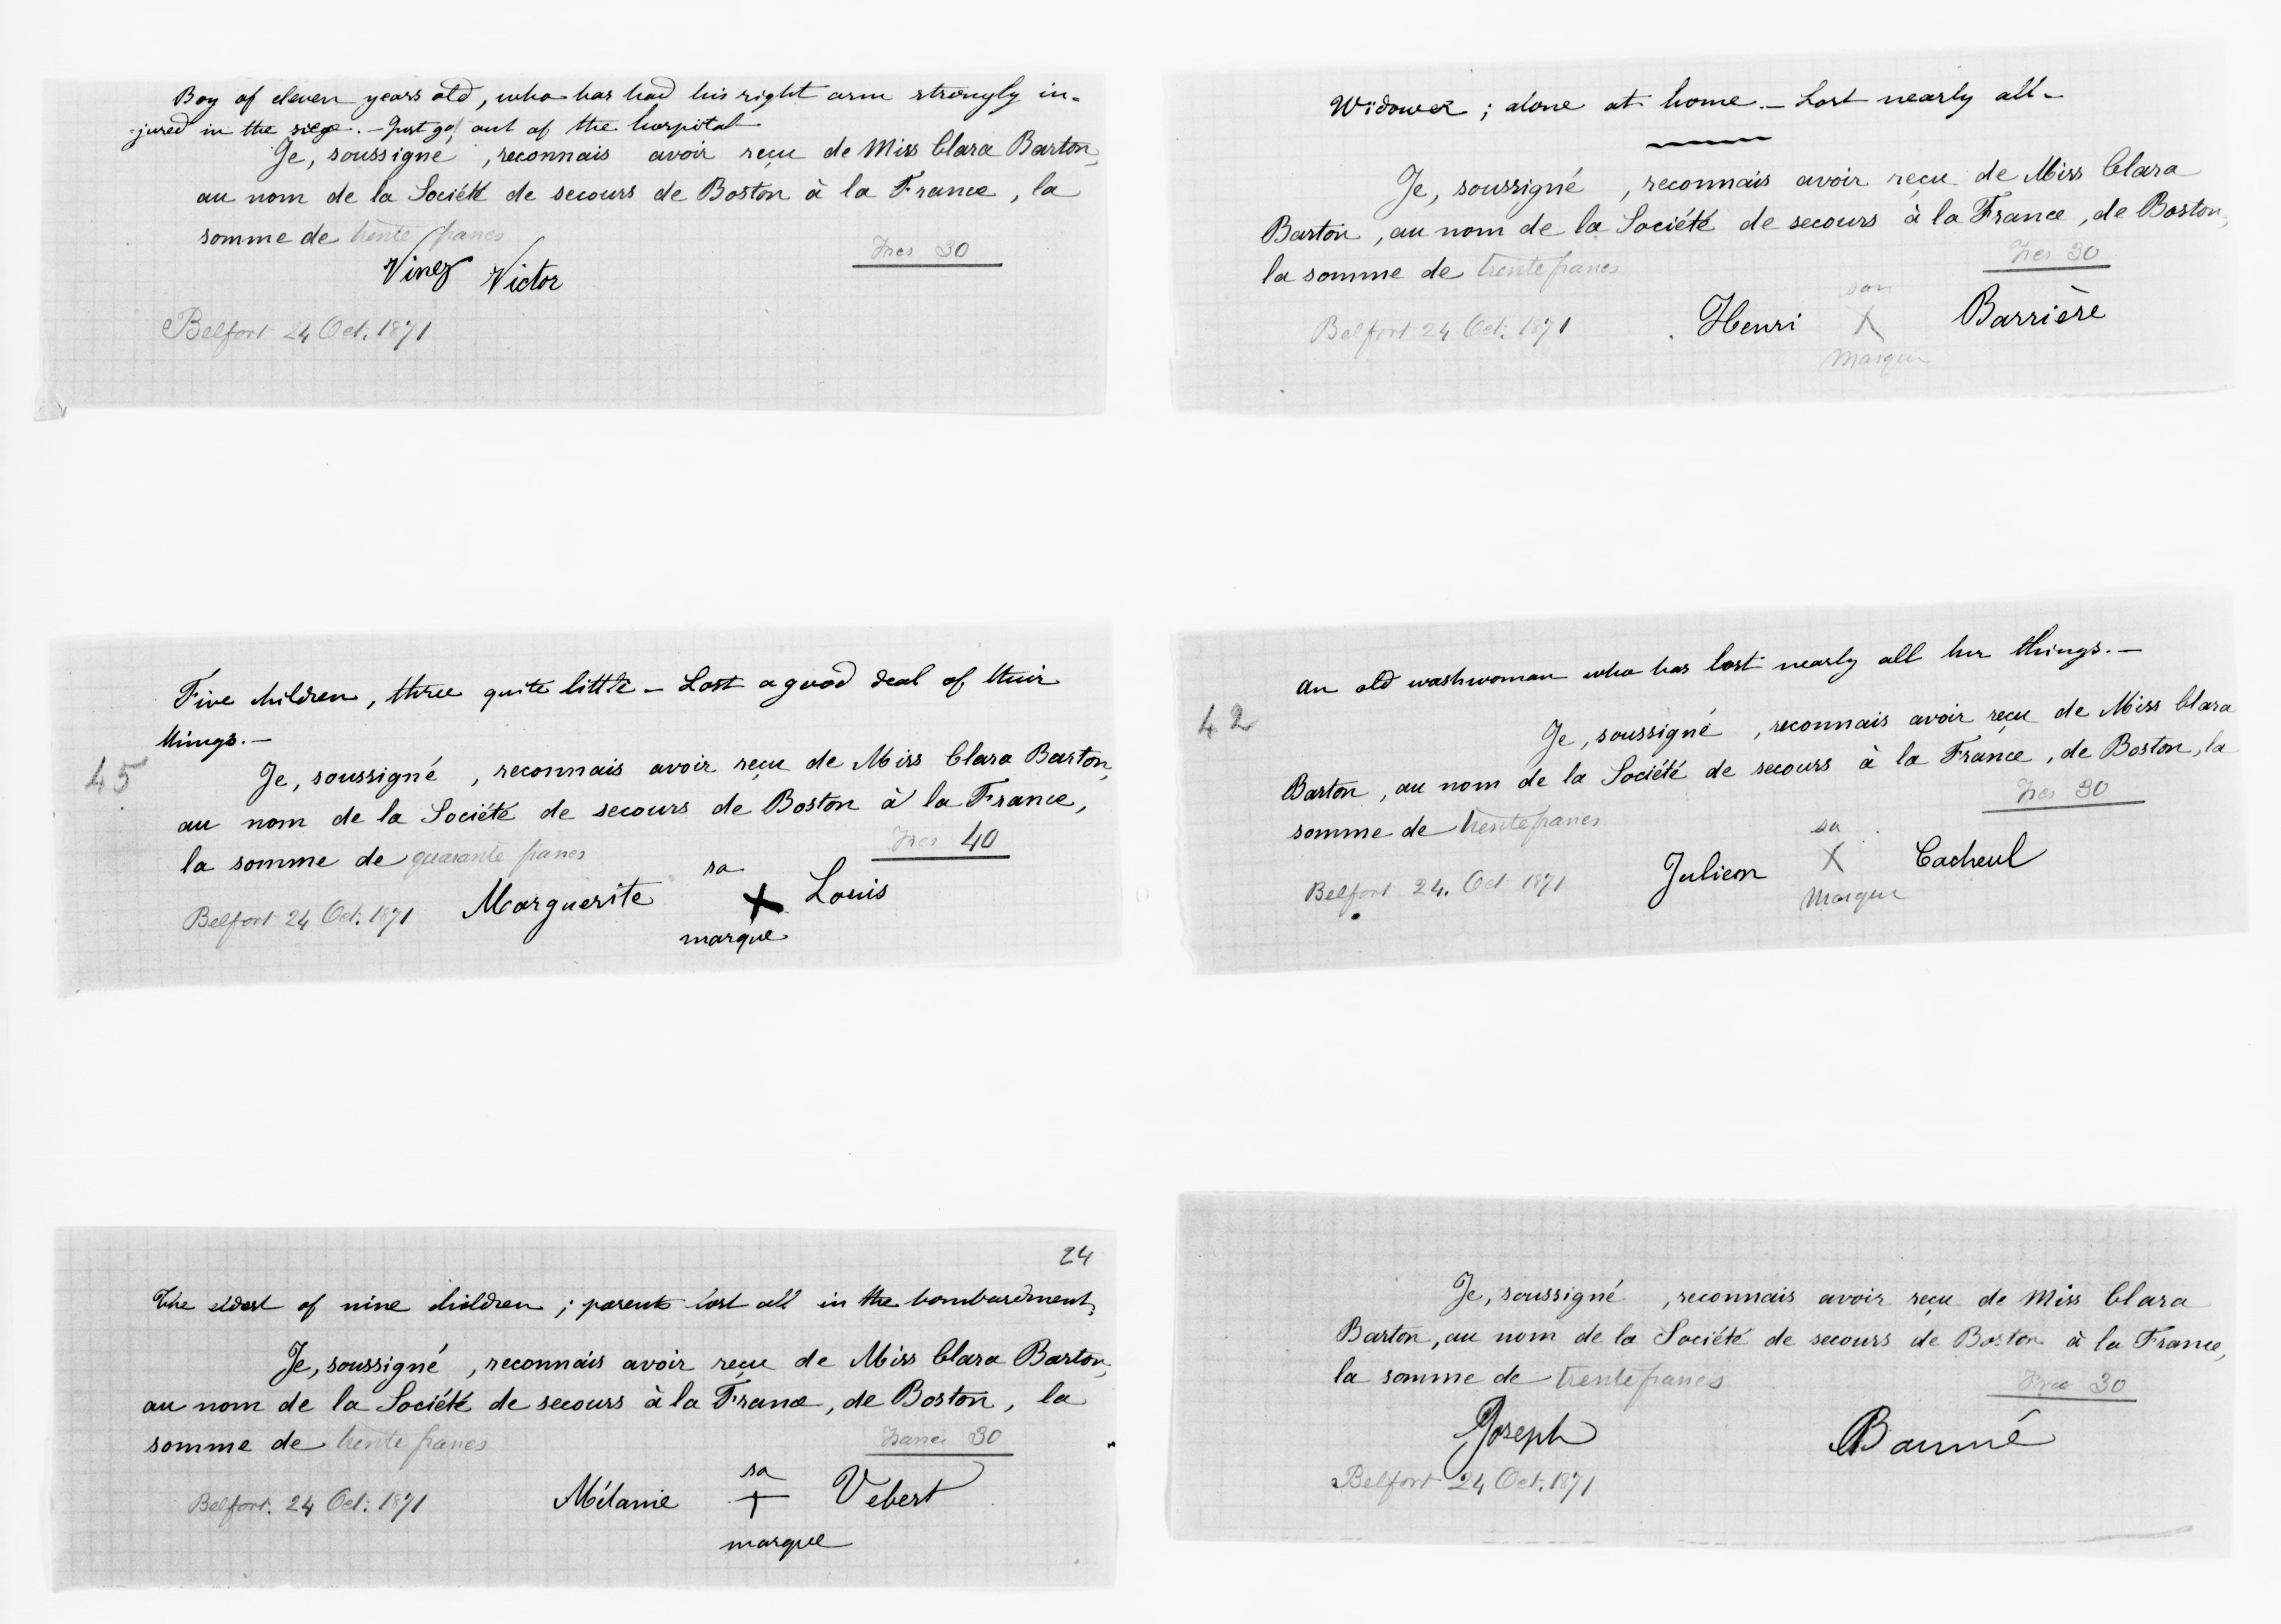 Boy of eleven years old, who has had his right arm strongly in-
-jured in the siege. - Just got out of the hospital
Je, soussigné , reconnais avoir reçu de Miss Clara Barton,
au nom de la Société de secours de Boston à la France, la
somme de trente francs
Frcs 30
Vinez Victor
Belfort 24 Oct. 1871
Widower ; alone at home. - Lost nearly all -
Je, soussigné , reconnais avoir reçu de Miss Clara
Barton, au nom de la Société de secours à la France, de Boston,
la somme de trente francs
Frcs 30
son
Henri X Barrière
Marque
Belfort 24 Oct. 1871
Five children, three quite little - Lost a good deal of their
things. -
45
Je, soussigné , reconnais avoir reçu de Miss Clara Barton,
au nom de la Société de secours de Boston à la France,
la somme de quarante francs
Frcs 40
sa
Marguerite X Louis
marque
Belfort 24 Oct. 1871
An old washwoman who has lost nearly all her things. -
42
Je, soussigné , reconnais avoir reçu de Miss Clara
Barton, au nom de la Société de secours à la France, de Boston, la
somme de trente francs
Frcs 30
sa
Julien X Cacheul
Marque
Belfort 24. Oct 1871
24
The eldest of nine children ; parents lost all in the bombardment.
Je, soussigné , reconnais avoir reçu de Miss Clara Barton,
au nom de la Société de secours à la France, de Boston, la
somme de trente francs
Francs 30
sa
Mélanie + Vebert
marque
Belfort. 24 Oct. 1871
Je, soussigné , reconnais avoir reçu de Miss Clara
Barton, au nom de la Société de secours de Boston à la France,
la somme de trente francs
Frcs 30
Joseph Baumé
Belfort 24 Oct. 1871